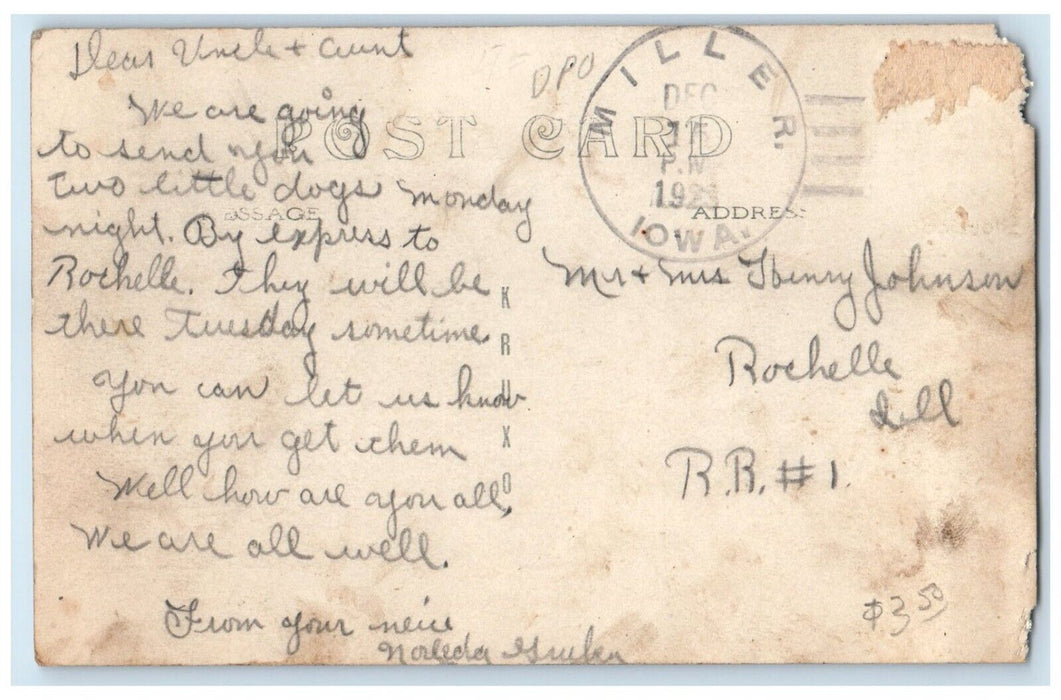 Dear Uncle + Aunt
We are going
to send you
two little dogs Monday
night. By express to
Rochelle. They will be
there Tuesday sometime.
You can let us know
when you get them
Well how are you all,
We are all well.
From your neice
Noreda
POST CARD
DPO
MILLER.
DEC
P.M.
IOWA.
ADDRESS
KRUXO
Mr + Mrs Henry Johnson
Rochelle
Ill
R.R. #1.
$3.50